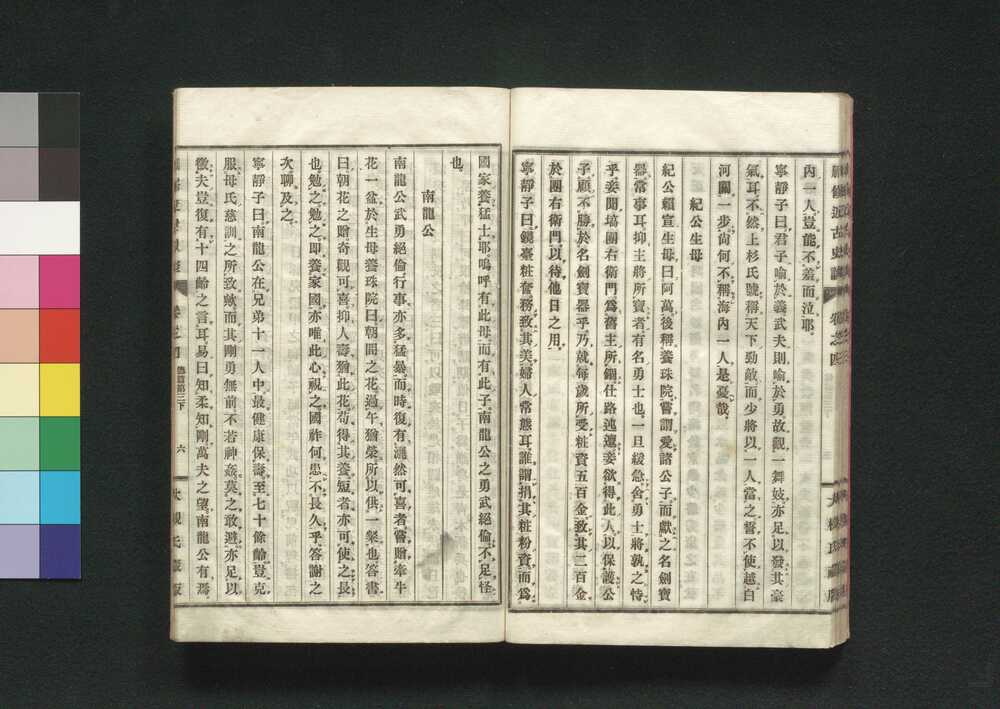 內一人豈能不羞而泣耶
寧靜子曰君子喻於義武夫則喻於勇故觀一舞妓亦足以發其豪
氣耳不然上杉氏號稱天下勁敵而少將以一人當之誓不使越白
河關一步尙何不稱海內一人是憂哉
紀公生母
紀公賴宣生母曰阿萬後稱養珠院嘗謂愛諸公子而獻之名劍寶
器常事耳抑主將所寶者有名勇士也一旦緩急舍勇士將孰之恃
乎妾聞塙團右衞門爲舊主所錮仕路迍邅妾欲得此人以保護公
子顧不勝於名劍寶器乎乃就每歲所受粧資五百金致其二百金
於團右衞門以待他日之用
寧靜子曰鏡臺粧奩務致其美婦人常態耳誰謂捐其粧粉資而爲
國家養猛士耶嗚呼有此母而有此子南龍公之勇武絕倫不足怪
也
南龍公
南龍公武勇絕倫行事亦多猛暴而時復有灑然可喜者嘗贈牽牛
花一盆於生母養珠院曰朝開之花過午猶榮所以供一粲也答書
曰朝花之贈奇觀可喜抑人壽猶此花苟得其養短者亦可使之長
也勉之勉之卽養家國亦唯此心視之國祚何患不長久乎答謝之
次聊及之
寧靜子曰南龍公在兄弟十一人中最健康保壽至七十餘齡豈克
服母氏慈訓之所致歟而其剛勇無前不若神姦莫之敢避亦足以
徵夫豈復有十四齡之言耳易曰知柔知剛萬夫之望南龍公有焉
卷之四
德音第三下
六